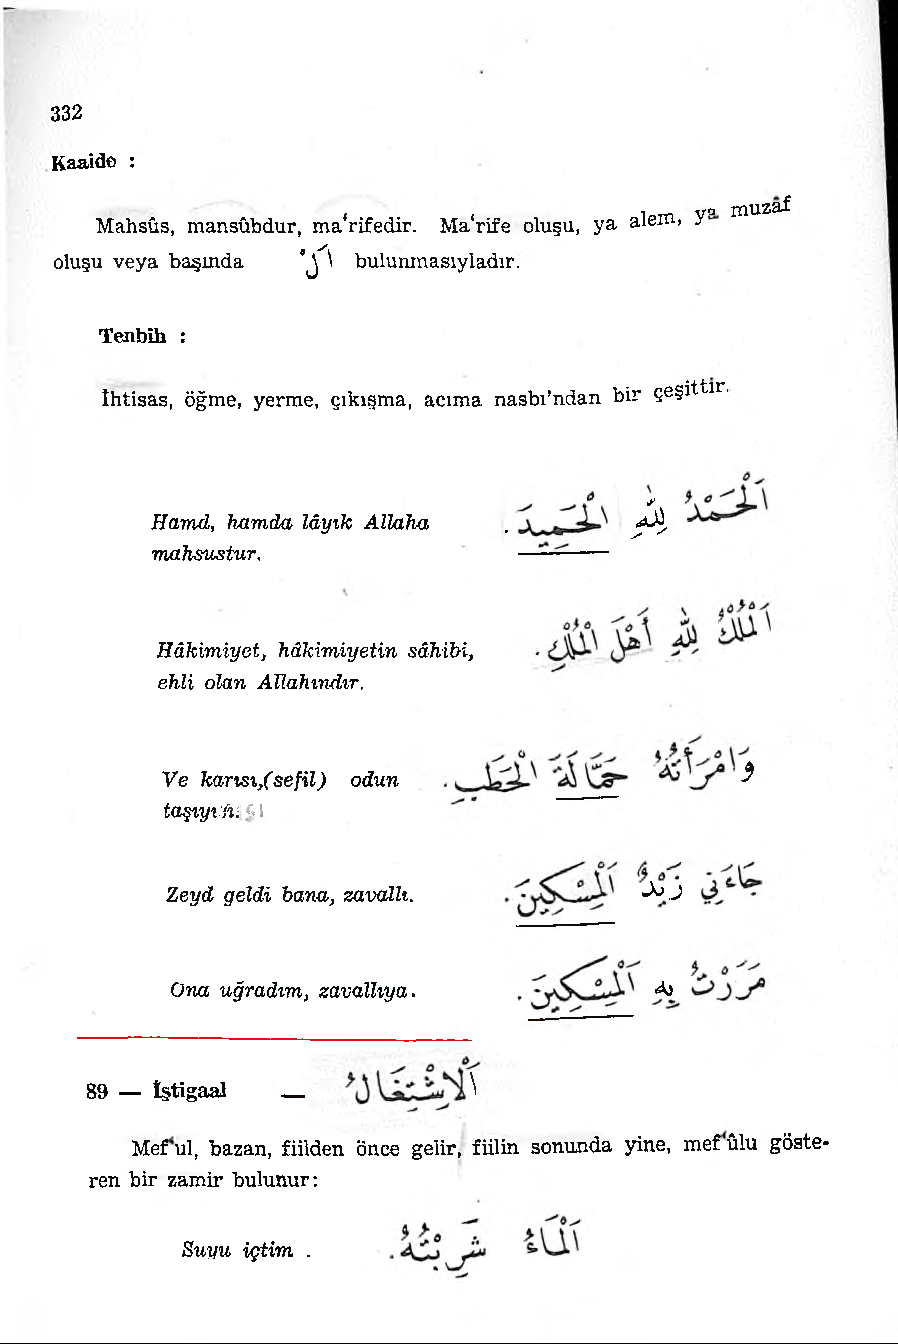 332
Kaaide :
Mahsûs, mansûbdur, ma‘rifedir. Ma‘rife oluşu, ya alem, ya muzâf
oluşu veya başında اَلْ bulunmasıyladır.
Tenbih :
İhtisas, öğme, yerme, çıkışma, acıma nasbı’ndan bir çeşittir.
Hamd, hamda lâyık Allaha اَلْحَمْدُ لِلّٰهِ الْحَمِيدَ.
mahsustur.
Hâkimiyet, hâkimiyetin sâhibi, اَلْمُلْكُ لِلّٰهِ أَهْلَ الْمُلْكِ.
ehli olan Allahındır.
Ve karısı,(sefil) odun وَامْرَأَتُهُ حَمَّالَةَ الْحَطَبِ.
taşıyıñ.
Zeyd geldi bana, zavallı. جَاءَنِي زَيْدٌ اَلْمِسْكِينَ.
Ona uğradım, zavallıya. مَرَرْتُ بِهِ اَلْمِسْكِينَ.
89 — İştigaal — اَلْاِشْتِغَالُ
Mef‘ul, bazan, fiilden önce gelir, fiilin sonunda yine, mef‘ûlu göste-
ren bir zamir bulunur:
Suyu içtim . اَلْمَاءُ شَرِبْتُهُ.